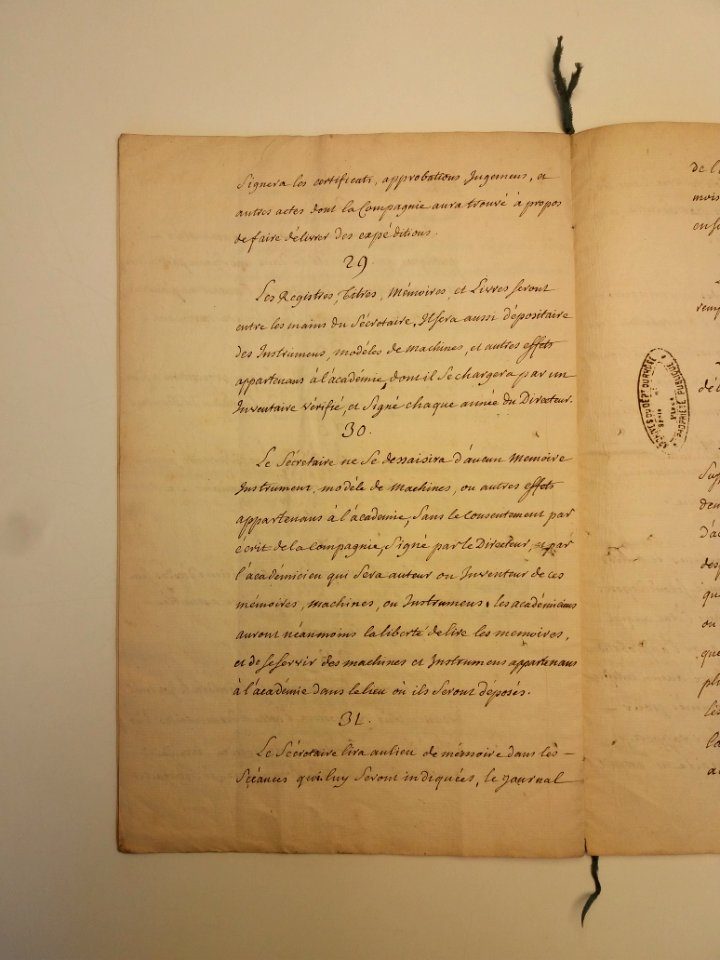 Signera les certificats, approbations, Jugemens, et
autres actes dont la Compagnie aura trouvé à propos
de faire délivrer des expéditions.
29
Les Registres, Titres, Mémoires, et Livres seront
entre les mains du Sécrétaire, Il sera aussi dépositaire
des Instrumens, modéles de Machines, et autres effets
appartenans à l'académie, dont il Se chargera par un
Inventaire vérifié, et Signé chaque année du Directeur.
30.
Le Sécrétaire ne Se dessaisira d'aucun Memoire
Instrument, modéle de Machines, ou autres effets
appartenans à l'académie, Sans le consentement par
écrit de la Compagnie, Signé par le Directeur, et par
l'académicien qui Sera auteur ou Inventeur de ces
mémoires, Machines, ou Instrumens. les académiciens
auront néanmoins la liberté de lire les memoires,
et de se servir des machines et Instrumens appartenans
à l'académie dans le lieu où ils Seront déposés.
31.
Le Sécrétaire lira au lieu de mémoire dans lès
Scéances qui luy Seront indiquées, le Journal
de l'
mois
en s
remp
dél
Sup
deu
d'ac
des
qu
ou
que
pl
lès
la
a
PROPRIÉTÉ PUBLIQUE